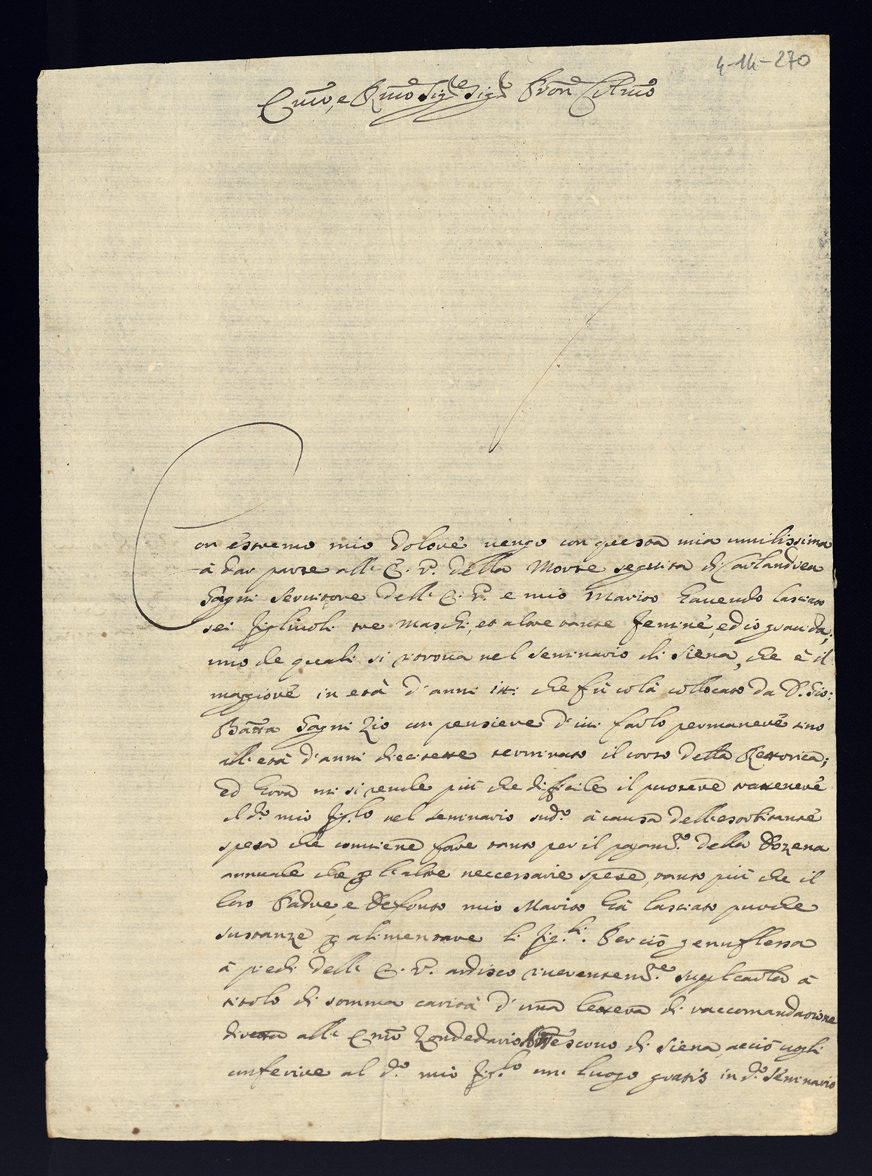 4-14-270
Emo, e Rmo Sige Sigr Pron Colmo
Con estremo mio dolore vengo con questa mia umilissima
à dar parte all' E. V. della Morte seguita di Carlandrea
Fagni servitore dell' E. V. e mio Marito havendo lasciato
sei figlivoli tre maschi, et altre tante femine, ed io gravida;
uno de quali si ritrova nel Seminario di Siena, che è il
maggiore in età d'anni che fù colà collocato da D. Gio:
Batta Fagni Zio con pensiere d'ivi farlo permanere sino
all' età d'anni diecisette terminato il corso della Rettorica;
ed hora mi si rende più che difficile il puotere trattenere
il do mio Figlo nel seminario sudo à causa dell'esorbitante
spesa che conviene fare tanto per il pagamto della Dozena
annuale che p le altre neccessarie spese, tanto più che il
loro Padre, e Defonto mio Marito hà lasciato puoche
sustanze p alimentare li Figli. Perciò genuflessa
à piedi dell' E. V. ardisco riverentemte supplicarla à
titolo di somma carità d'una lettera di raccomandazione
diretta all' Emo Zondedario Arcivescovo di Siena, acciò vogli
conferire al do mio Figlo un luogo gratis in do Seminario